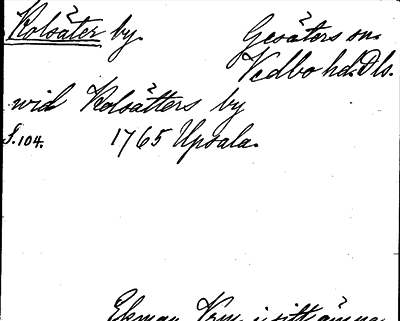 Kolsäter by. Gesäters sn.
Vedbo hd. Dls.
wid Kolsätters by
S. 104. 1765 Upsala.
Ekman